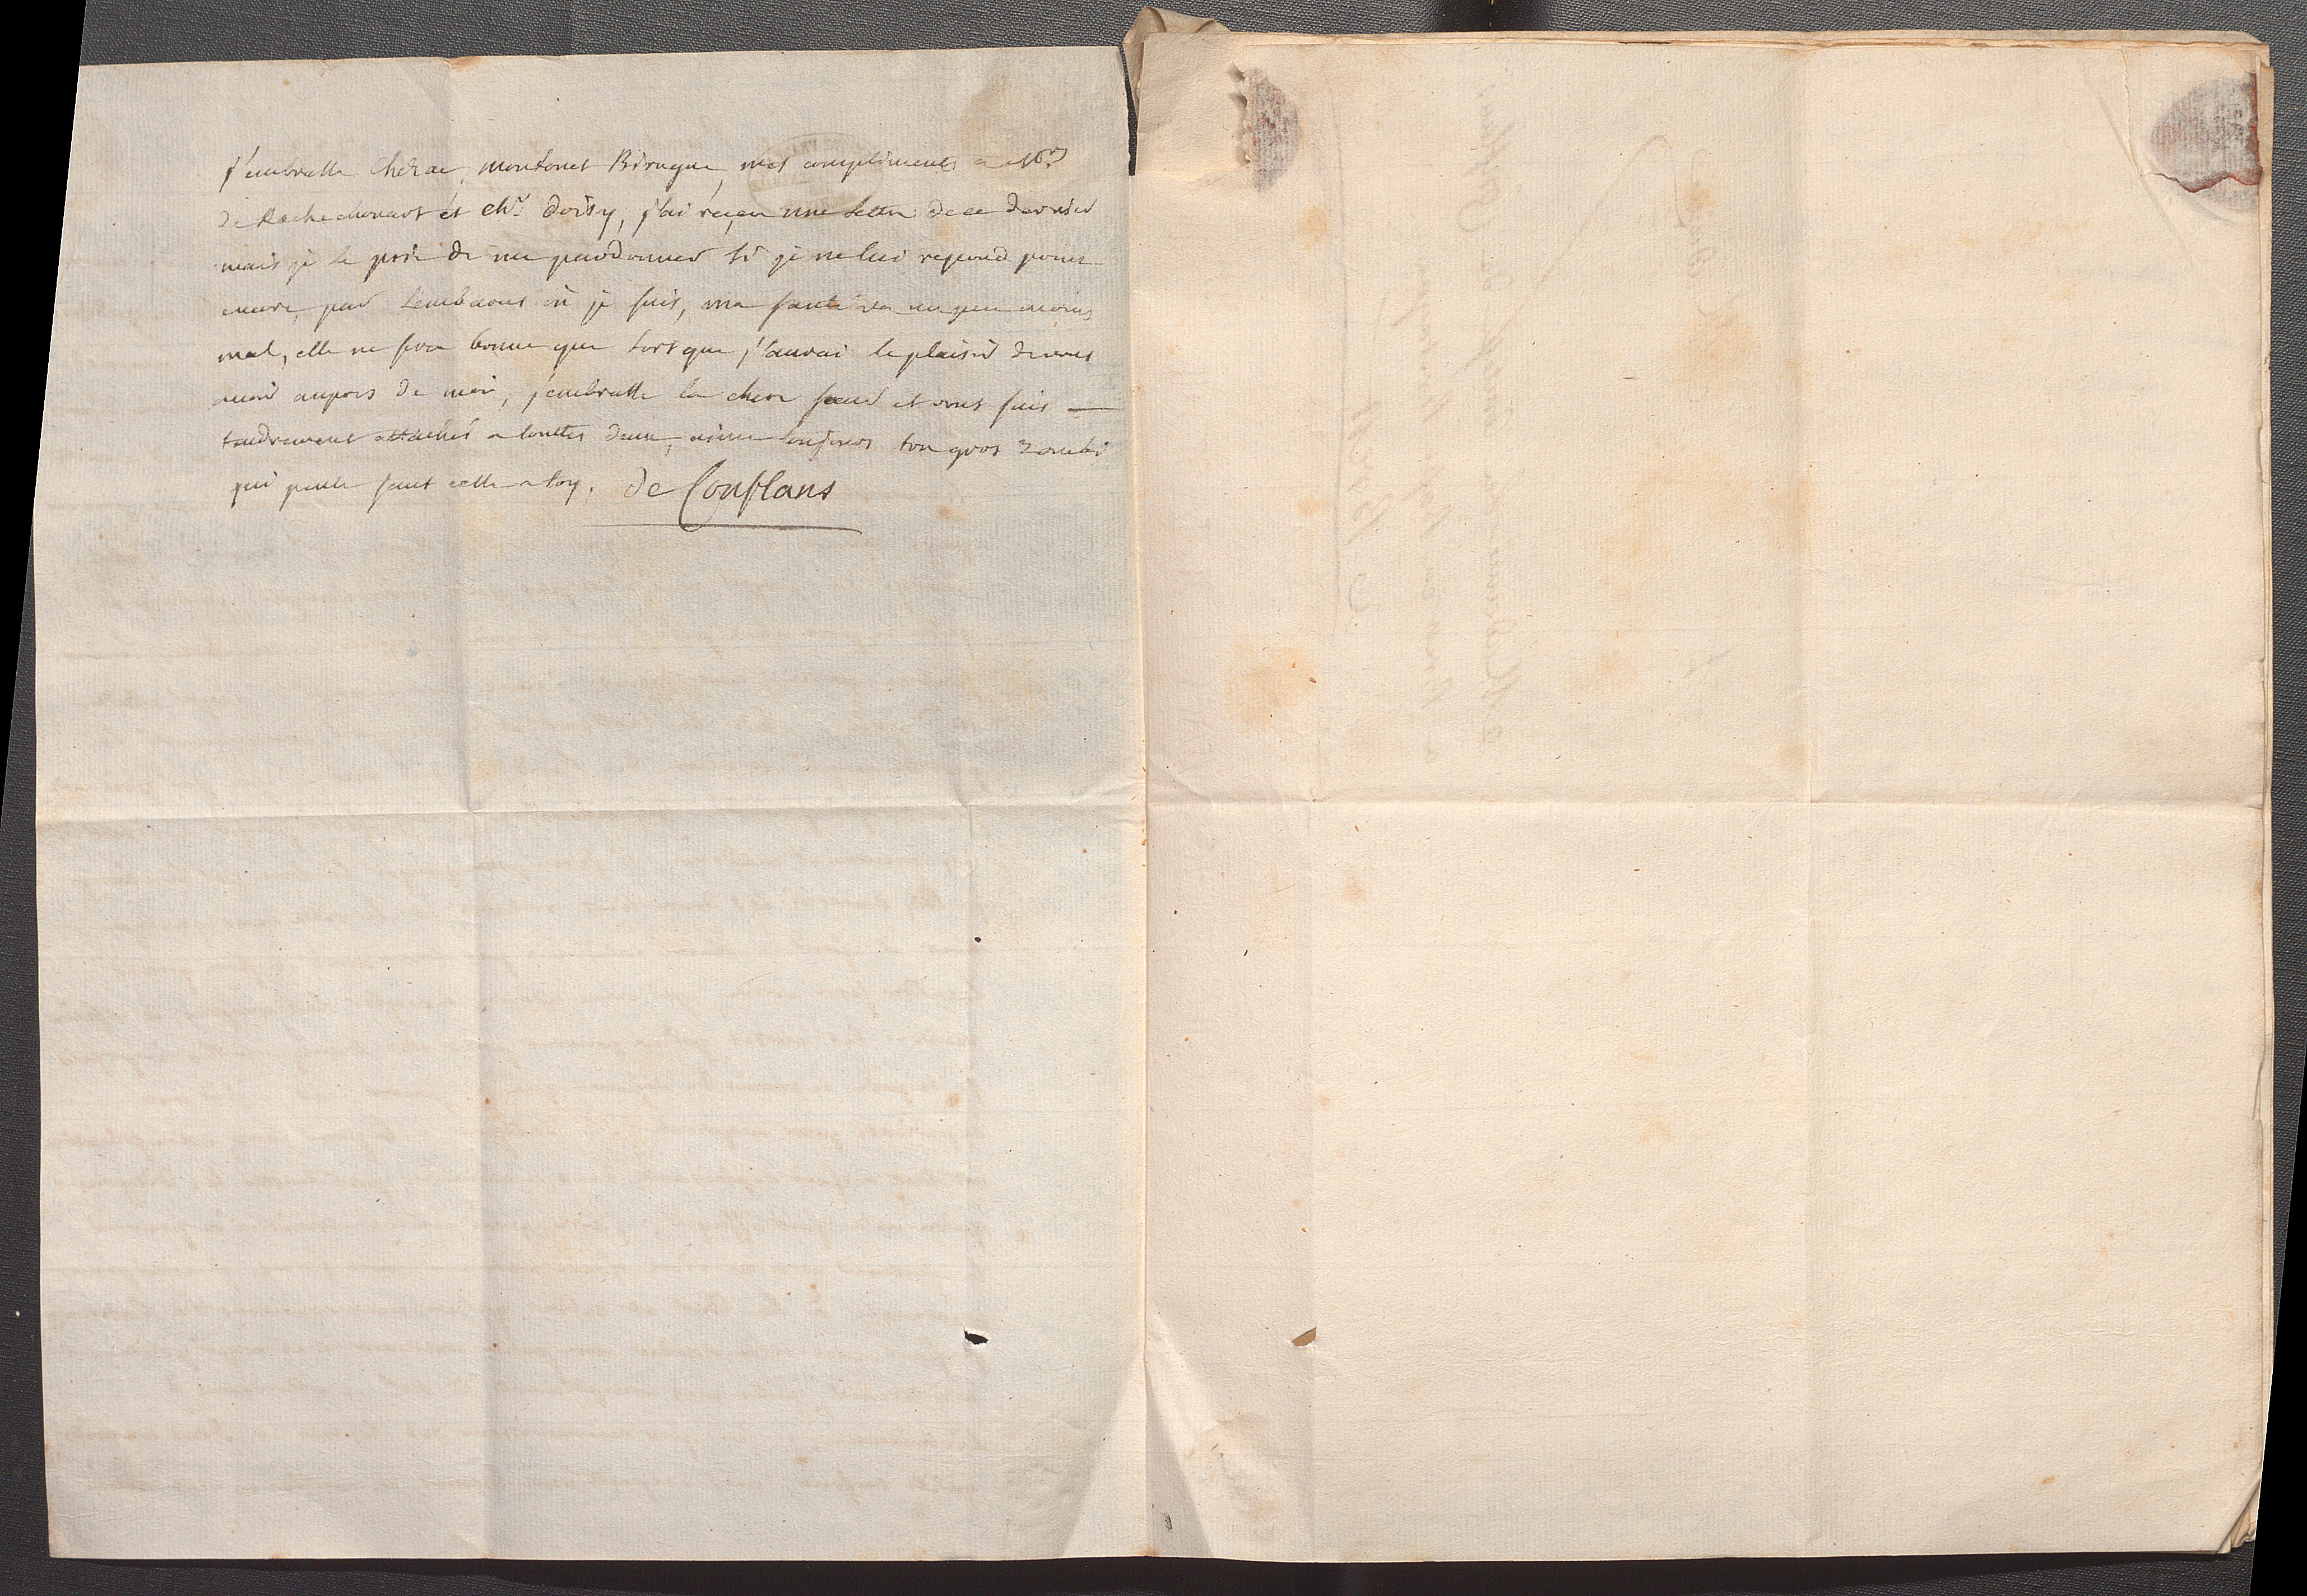 j'embrasse Chérac, montonet Birague, mes compliments a Mrs
de Rochechouart et chr doisy, j'ai reçeu une lettre de ce dernier
mais je le prie de me pardonner si je ne lui repond point
encore, par l'embaras où je suis, ma santé va un peu moins
mal, elle ne sera bonne que lorsque j'aurai le plaisir de vous
avoir aupres de moi, j'embrasse la chere soeur et vous suis
tendrement attaché a touttes deux, aime toujours ton gros zombi
qui pense sans cesse a toy. de Conflans